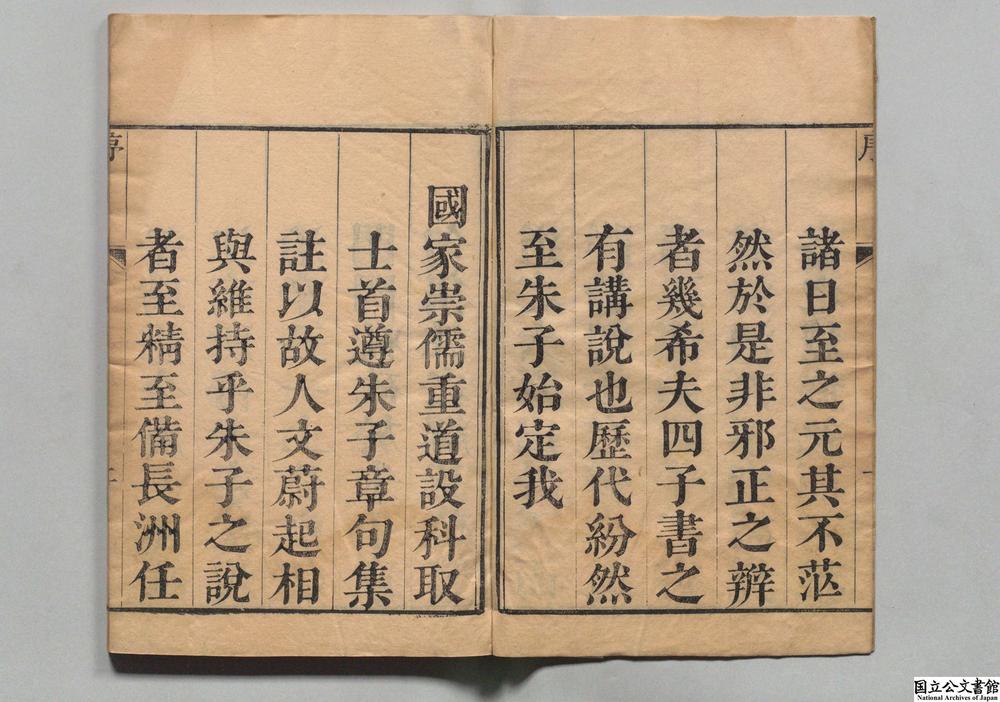 諸日至之元其不茫
然於是非邪正之辨
者幾希夫四子書之
有講說也歷代紛然
至朱子始定我
國家崇儒重道設科取
士首遵朱子章句集
註以故人文蔚起相
與維持乎朱子之說
者至精至備長洲任
国立公文書館
National Archives of Japan